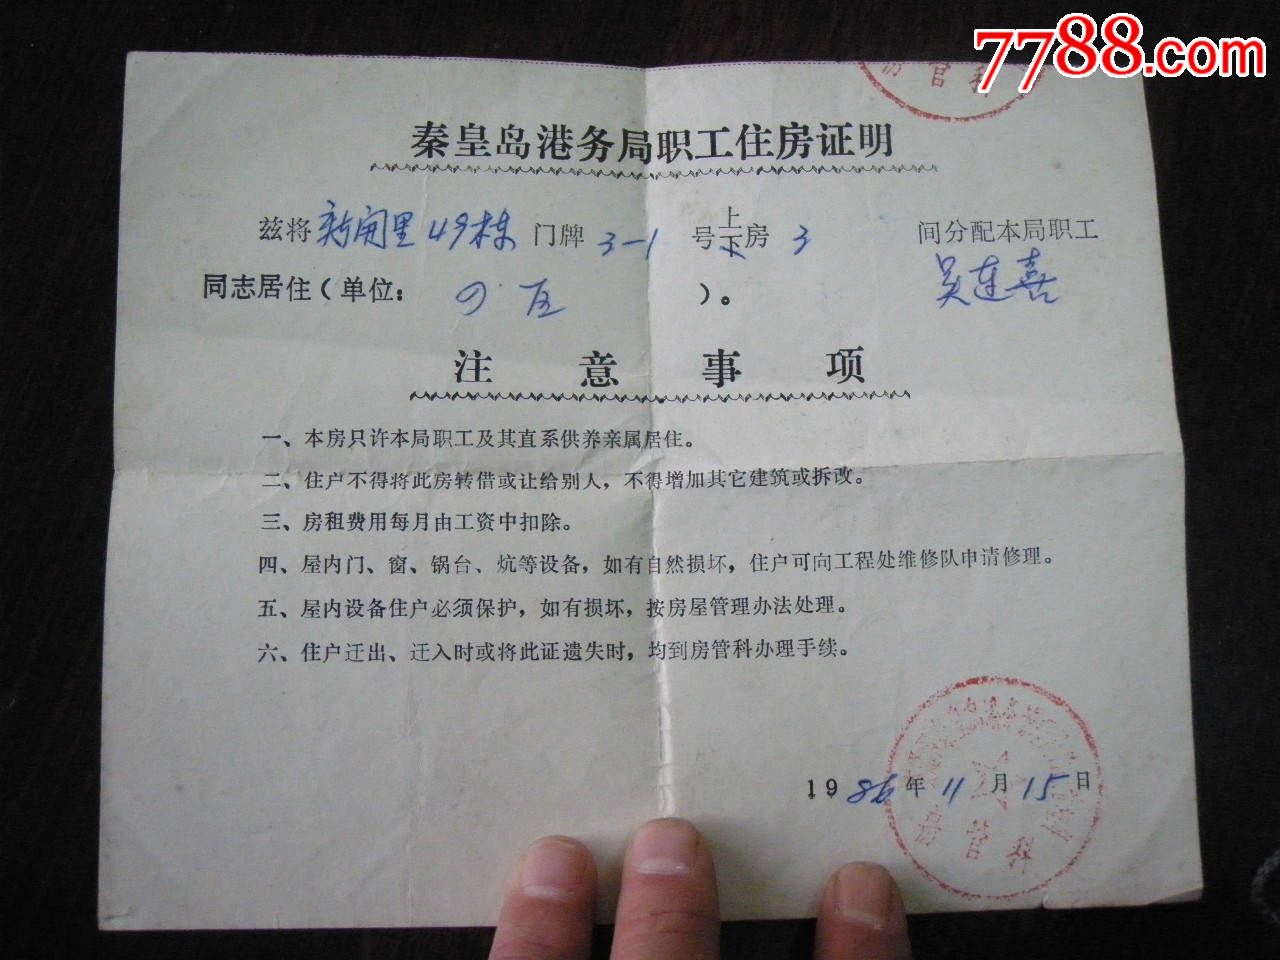 7788.com
房管科
秦皇岛港务局职工住房证明
兹将 新开里49栋 门牌 3-1 号上下房 3 间分配本局职工
吴连喜
同志居住(单位: ). 
注意事项
一、本房只许本局职工及其直系供养亲属居住。
二、住户不得将此房转借或让给别人，不得增加其它建筑或拆改。
三、房租费用每月由工资中扣除。
四、屋内门、窗、锅台、炕等设备，如有自然损坏，住户可向工程处维修队申请修理。
五、屋内设备住户必须保护，如有损坏，按房屋管理办法处理。
六、住户迁出、迁入时或将此证遗失时，均到房管科办理手续。
1986年11月15日
房管科